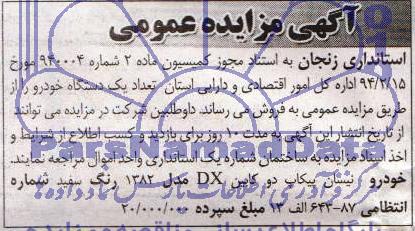 آگهی مزایده عمومی
استانداری زنجان به استناد مجوز کمسیون ماده ۲ شماره ۹۴۰۰۰۴ مورخ
۹۴/۲/۱۵ اداره کل امور اقتصادی و دارایی استان تعداد یک دستگاه خودرو را از
طریق مزایده عمومی به فروش می رساند. داوطلبین شرکت در مزایده می توانند
از تاریخ انتشار این آگهی به مدت ۱۰ روز برای بازدید و کسب اطلاع از شرایط و
اخذ اسناد مزایده به ساختمان شماره یک استانداری واحد اموال مراجعه نمایند.
خودرو نیسان پیکاپ دو کابین DX مدل ۱۳۸۲ رنگ سفید شماره
انتظامی ۸۷-۶۴۳ الف ۱۳ مبلغ سپرده ۲۰/۰۰۰/۰۰۰
ParsNamadData